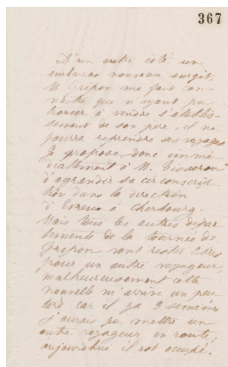 367
D'un autre côté un
embarras nouveau surgit.
M. Gripon me fait con-
naître que n'ayant pu
trouver à vendre l'établis-
sement de son père, il ne
pourra reprendre ses voyages
Je propose donc immé-
diatement à M.
d'agrandir sa circonscrip-
tion dans la direction
d'Evreux à Cherbourg.
Mais tous les autres dépar-
tements de la tournée de
Gripon sont restés
pour un autre voyageur,
malheureusement cette
nouvelle m'arrive un peu
tard car il y a 2 semaines
j'aurais pu mettre un
autre voyageur en route,
aujourd'hui il est occupé.